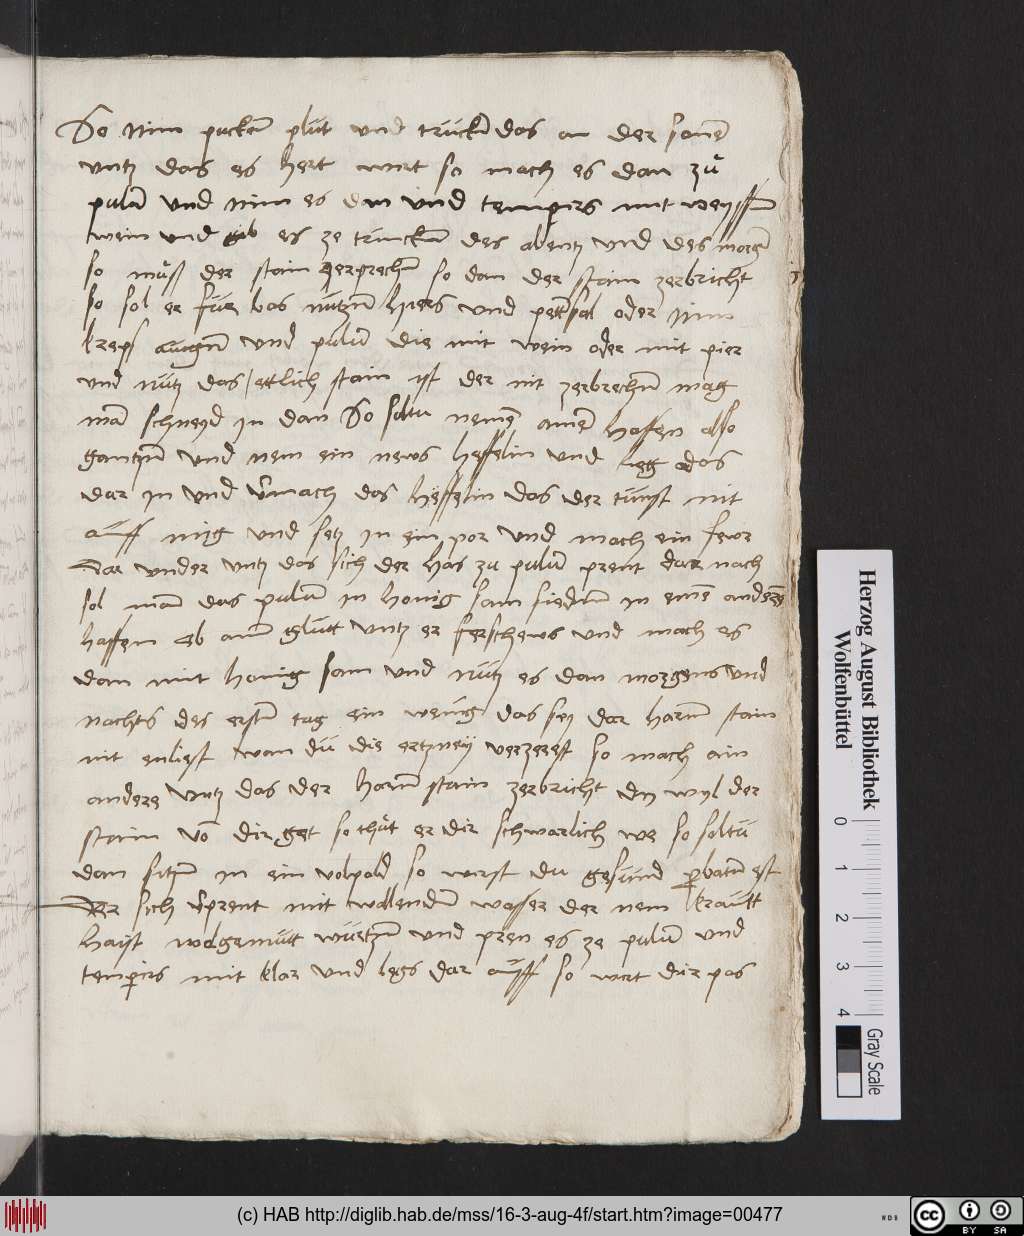 So nim pucken plut und trucken das an der sonen
untz das es hert wirt so mach es dan zu
pulver und nim es und tempirs mit weyssem
wein und gib es ze trincken des abentz und des morgen
so muß der stain zerprechen so dan der stain zerbricht
so sol er für bas nutzen hiers und petersal oder nim
kreps augen und pulver die mit wein oder mit pier
und nütz das / ettlich stain ist der nit zerbrechen mag
man schneyd in dan So soltu nemen ainen hassen also
gantzen und nem ein news heffelin und leg das
dar in und vermach das heffelin das der tunst nit
auff mig und setz in ein por und mach ein fewr
dar under untz das sich der has zu pulver prent dar nach
sol man das pulver in honig sam sieden in einen anderen
haffen ob ainer glutt untz er und mach es
dan mit honig sam und nütz es dan morgens und
nachts des ersten tag ein wenig das sey dar harm stain
nit enliest wan du die ertzney verzerest so mach ain
andere untz das der harm stain zerbricht Dy wyl der
stain von dir get so thut er dir schwarlich we so soltu
dan sitzen in ein volpald so wirst du gesund probatum est
Der sich verprent mit wallenden wasser der nem kraütt
haist wolgemutt würtzen und pren es ze pulver und
tempirs mit klar und legs dar auff so wirt dir pas
Herzog August Bibliothek
Wolfenbüttel
0 1 2 3 4
Gray Scale
(c) HAB http://diglib.hab.de/mss/16-3-aug-4f/start.htm?image=00477
cc BY SA